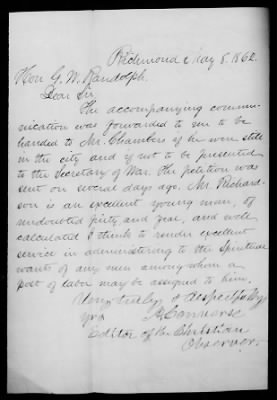 Richmond May 8. 1862.
Hon G. W. Randolph.
Dear Sir
The accompanying commu-
nication was forwarded to me to be
handed to Mr. Chambers if he were still
in the city and if not to be presented
to the Secretary of War. The petition was
sent on several days ago. Mr. Richard-
son is an excellent young man, of
undoubted piety, and zeal, and well
calculated I think to render excellent
service in administering to the Spiritual
wants of any men among whom a
post of labor may be assigned to him.
Very truly & Respectfully
yrs
A. Converse
Editor of the Christian
Observer.